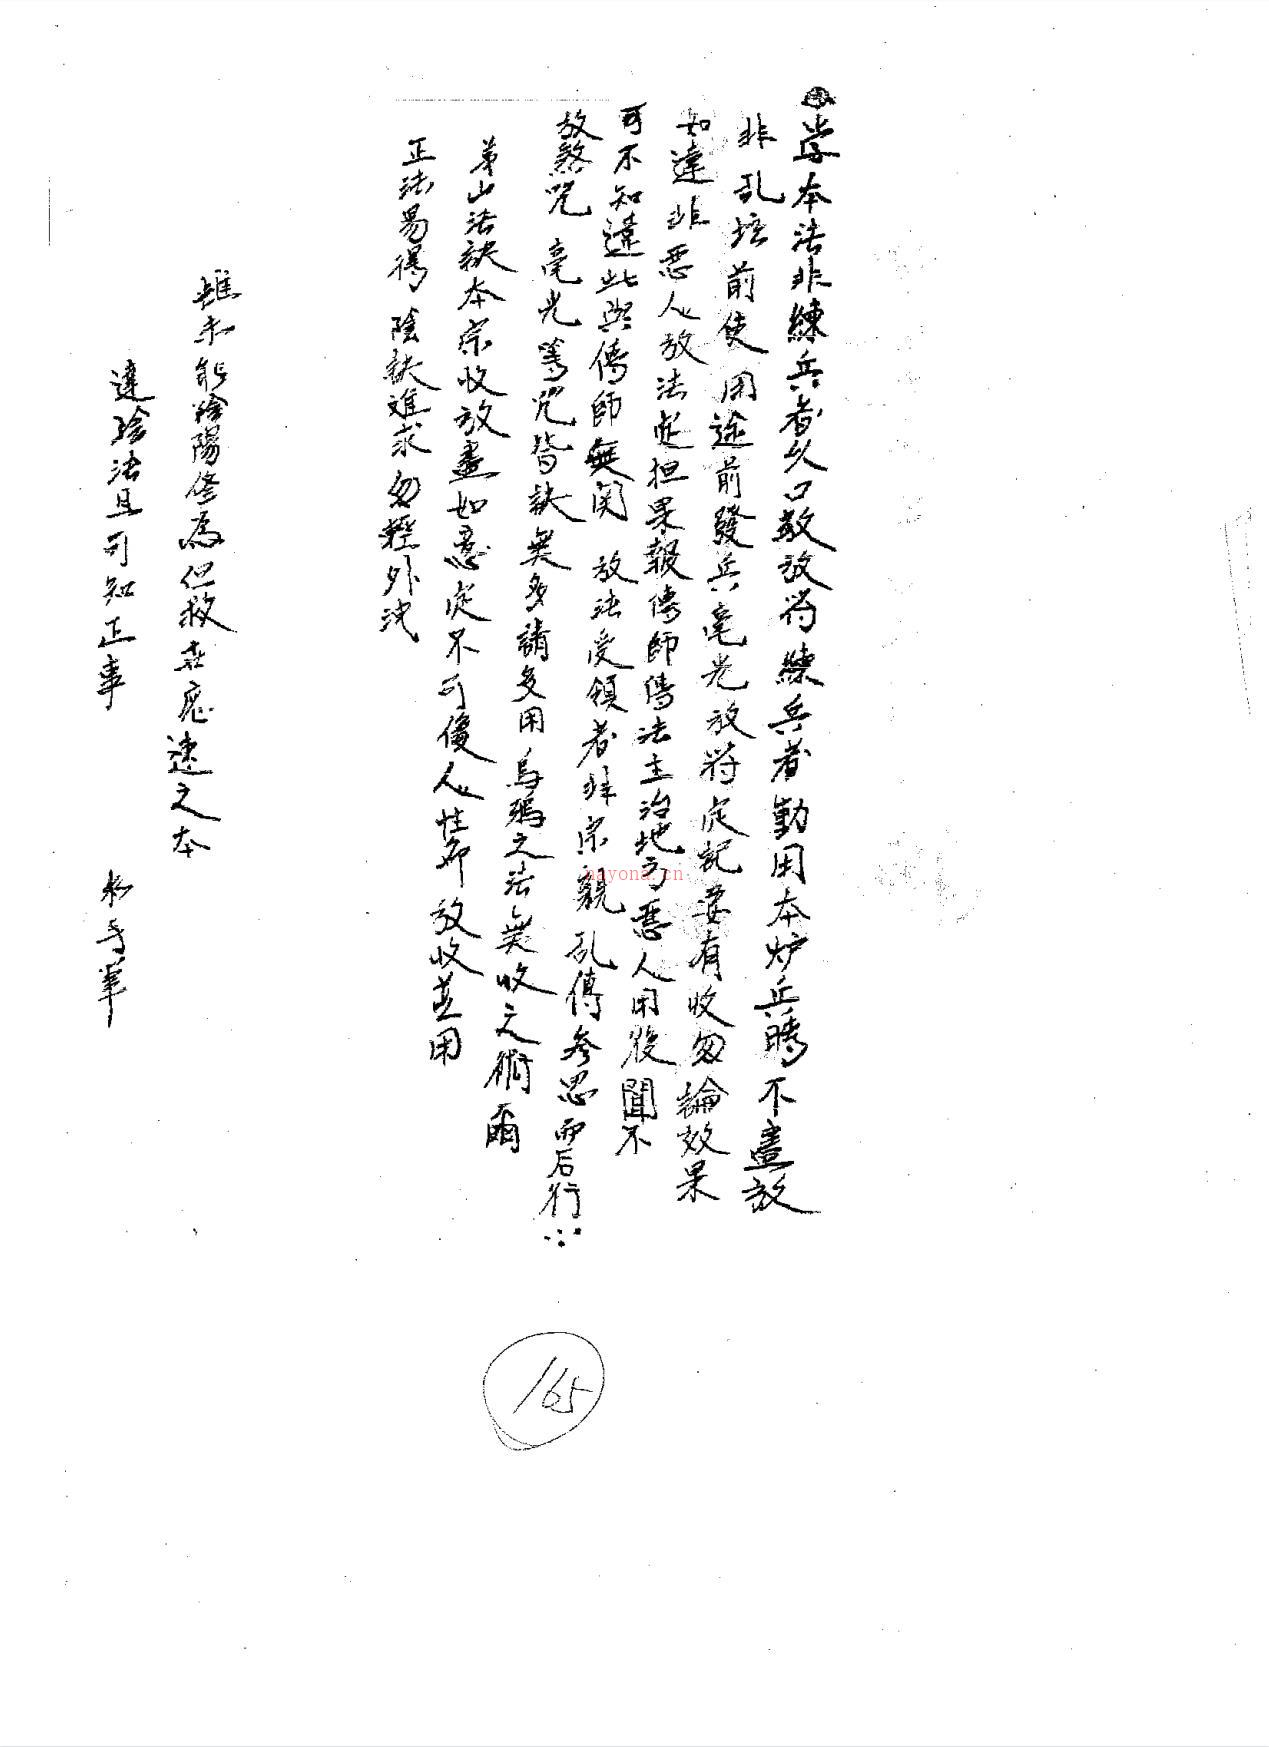 学本法非練兵者久口敬放符練兵者勤用本炉兵時不盡放
非乱坛前使用途前發兵毫光放將定記要有收勿論效果
如違非惡人放法定担果報傳師傳法主治地方惡人用後聞不
可不知違此與傳師無関 放法受領者非宗親乱傳参思而后行
放煞咒 毫光等咒皆訣無多請多用烏鴉之法無收之術爾
茅山法訣本宗收放盡如意定不可傷人性命放收並用
正法易得 陰訣進求勿輕外洩
雖未能陰陽修為但救世應達之本
達陰法且可知正事
nayona.cn
165